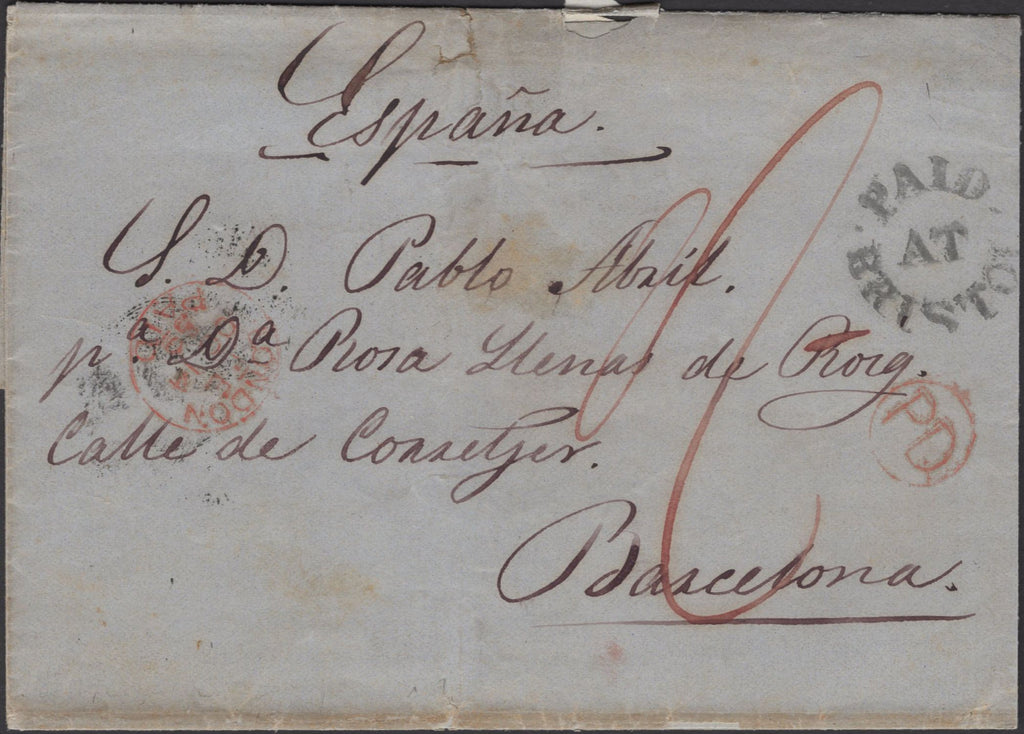 España.
S. D. Pablo Abril.
pª Dª Rosa Llenas de Roig.
Calle de Conseller.
Barcelona.
PAID
AT
BRISTOL
PD
LONDON
PAID